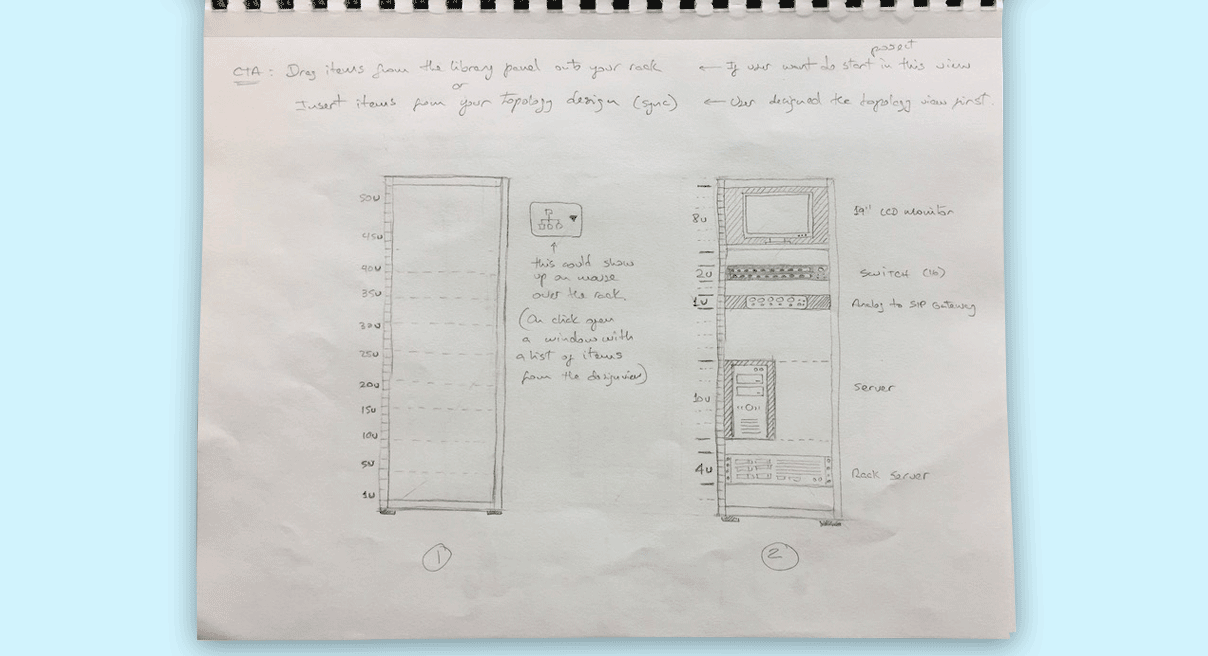 CTA: Drag items from the library panel onto your rack ← If user want do start in this view
or
Insert items from your Topology design (sync) ← User designed the topology view first.
50U
45U
40U
35U
30U
25U
20U
15U
10U
5U
1U
this could show
up on mouse
over the rack.
(On click open
a window with
a list of items
from the design view)
1
8U
2U
1U
10U
4U
19" LCD Monitor
Switch (16)
Analog to SIP Gateway
Server
Rack Server
2